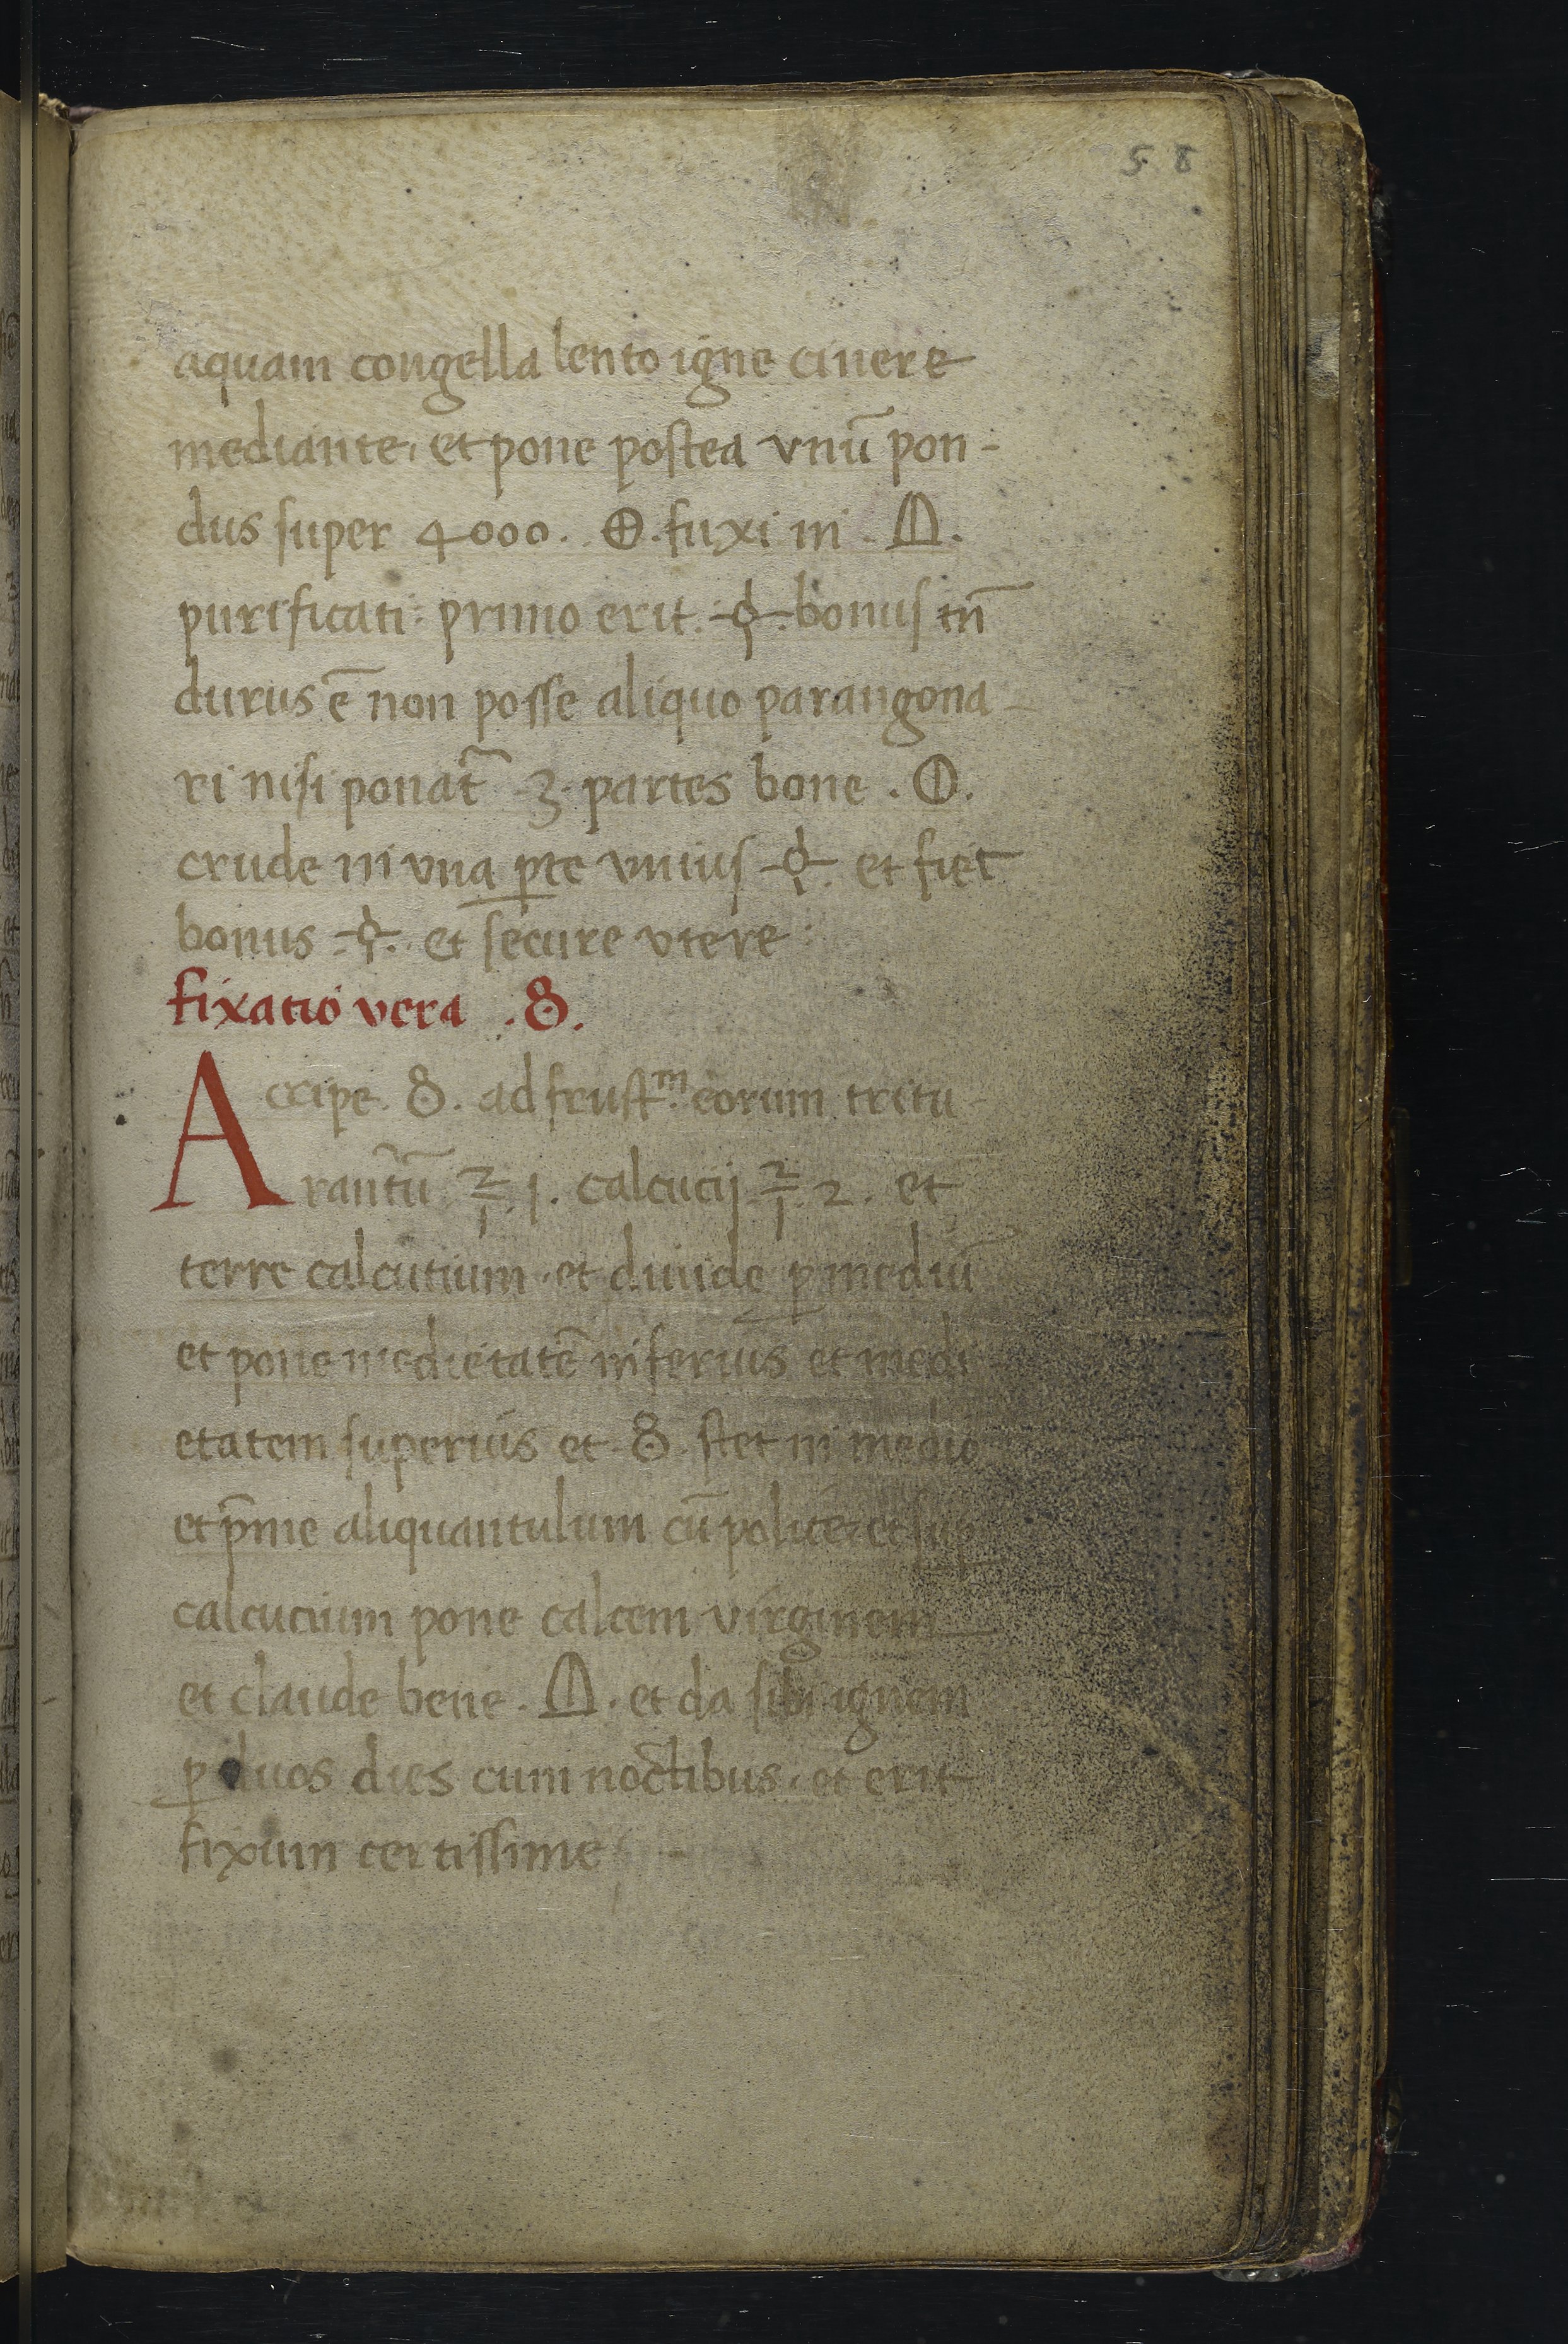 58
aquam congella lento igne cinere
mediante, et pone postea vnū pon-
dus super 4000. .fuxi in . .
purificati. primo erit. .bonus tn̄
durus ē non posse aliquo parangona-
ri nisi ponat᷑ 3. partes bone . .
crude in vna ꝑte vnius . et fiet
bonus . . et secure vtere
fixatio vera . 8.
Accipe. 8. ad frustᵐ. eorum tritu-
rantū . 1. calcucij . 2. et
terre calcutium. et diuide ꝑ mediū
et pone medietatē inferius et medi
etatem superius et. 8. stet in medio
et p̄me aliquantulum cū police. et suꝑ
calcucium pone calcem virginem
et claude bene. . et da sibi ignem
ꝑ duos dies cum noctibus. et erit
fixum certissime